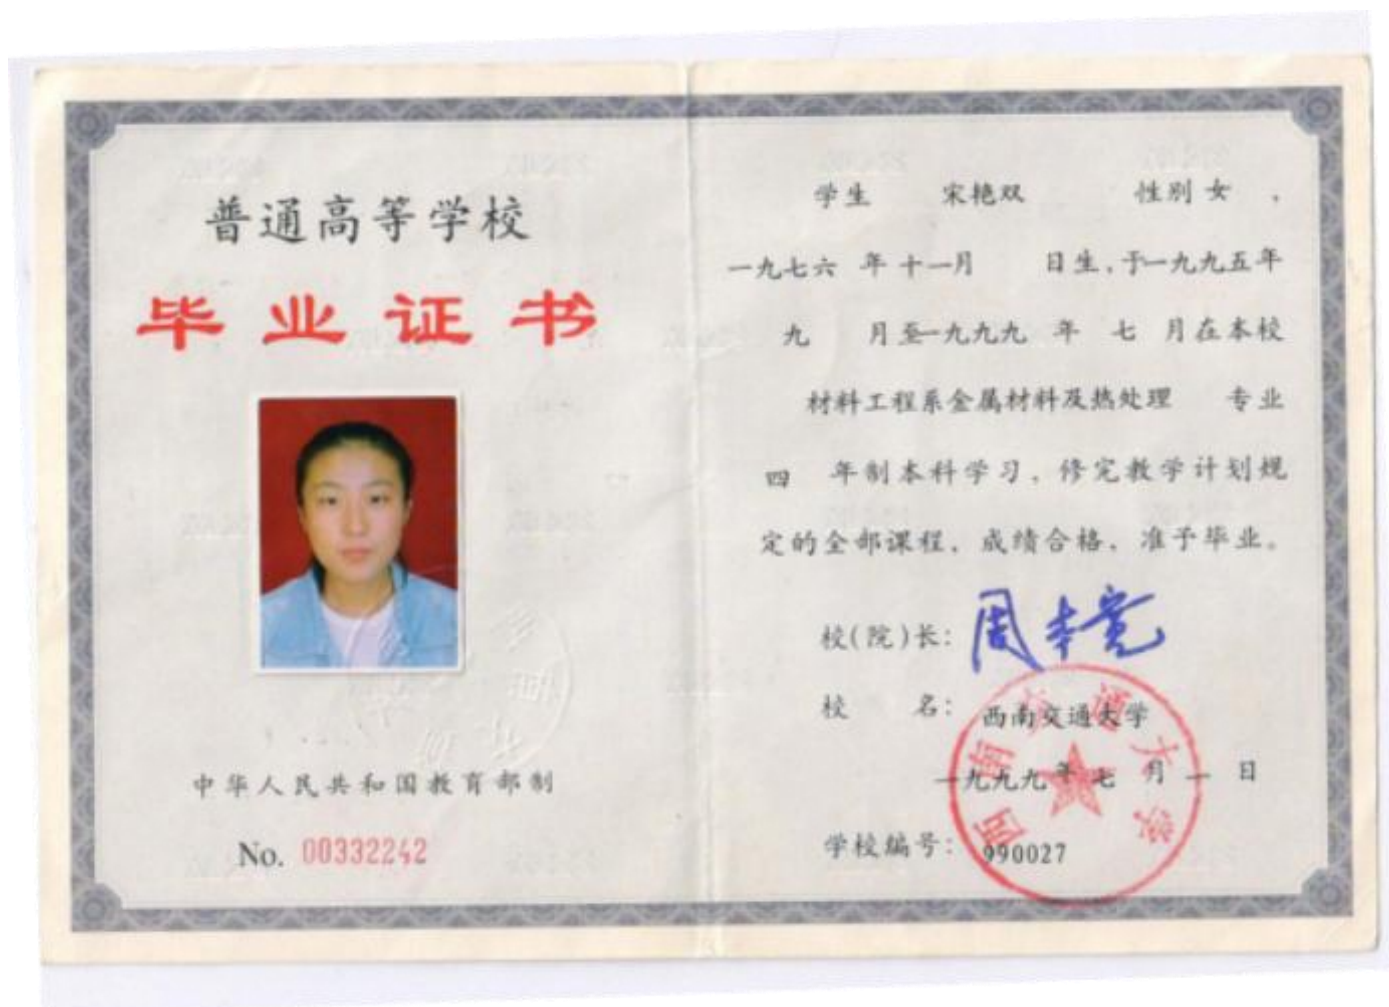 普通高等学校
毕业证书
中华人民共和国教育部制
No. 00332242
学生 宋艳双 性别 女 ,
一九七六 年 十一月 日生,于一九九五年
九 月至一九九九 年 七 月在本校
材料工程系金属材料及热处理 专业
四 年制本科学习,修完教学计划规
定的全部课程,成绩合格,准予毕业。
校(院)长: 周本宽
校 名: 西南交通大学
一九九九年 七 月 一 日
学校编号: 990027
西南交通大学